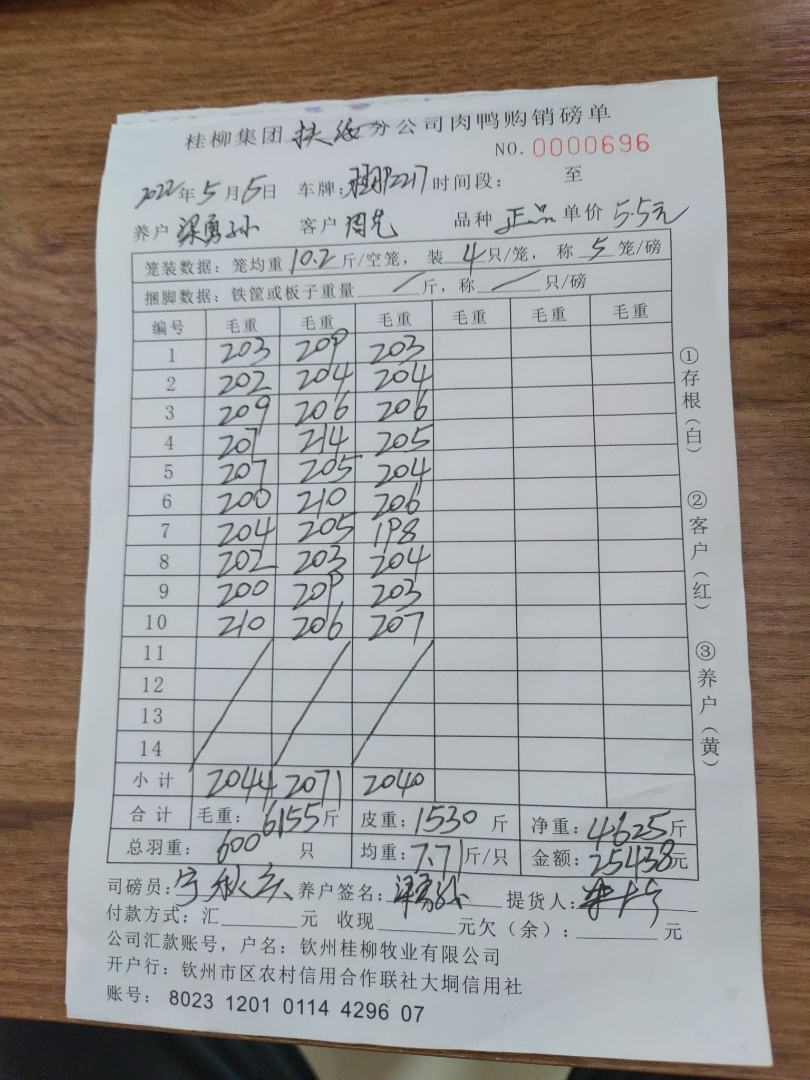 桂柳集团扶绥分公司肉鸭购销磅单
NO. 0000696
2022年5月5日 车牌: 2217 时间段: 至
养户 梁勇孙 客户 周先 品种 正品 单价 5.5元
笼装数据: 笼均重 10.2 斤/空笼, 装 4 只/笼, 称 5 笼/磅
捆脚数据: 铁筐或板子重量 / 斤, 称 / 只/磅
编号 毛重 毛重 毛重 毛重 毛重 毛重
1 203 209 203
2 202 204 204
3 209 206 206
4 207 214 205
5 207 205 204
6 200 210 206
7 204 205 198
8 202 203 204
9 200 209 203
10 210 206 207
11
12
13
14
小计 2044 2071 2040
合计 毛重: 6155斤 皮重: 1530 斤 净重: 4625斤
总羽重: 600 只 均重: 7.71斤/只 金额: 25438元
司磅员: 养户签名: 梁勇孙 提货人:
付款方式: 汇 元 收现 元欠(余): 元
公司汇款账号, 户名: 钦州桂柳牧业有限公司
开户行: 钦州市区农村信用合作联社大垌信用社
账号: 8023 1201 0114 4296 07
①存根(白)
②客户(红)
③养户(黄)